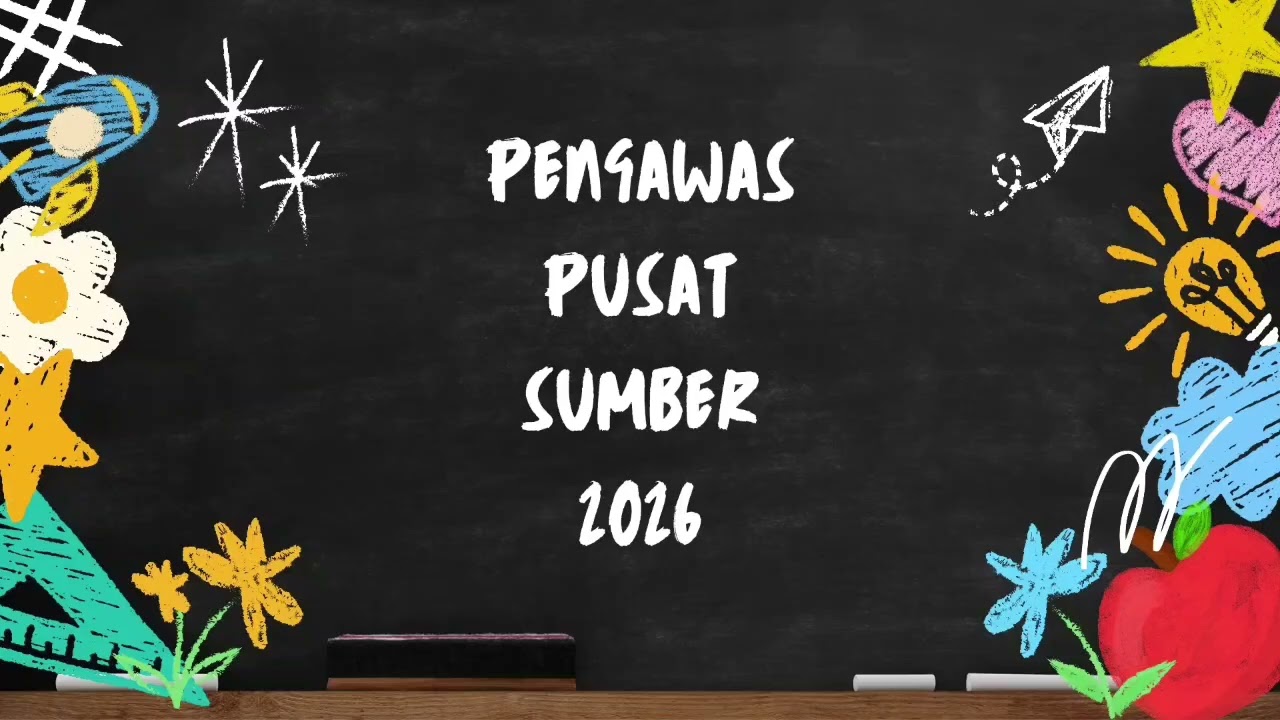 PENGAWAS
PUSAT
SUMBER
2026